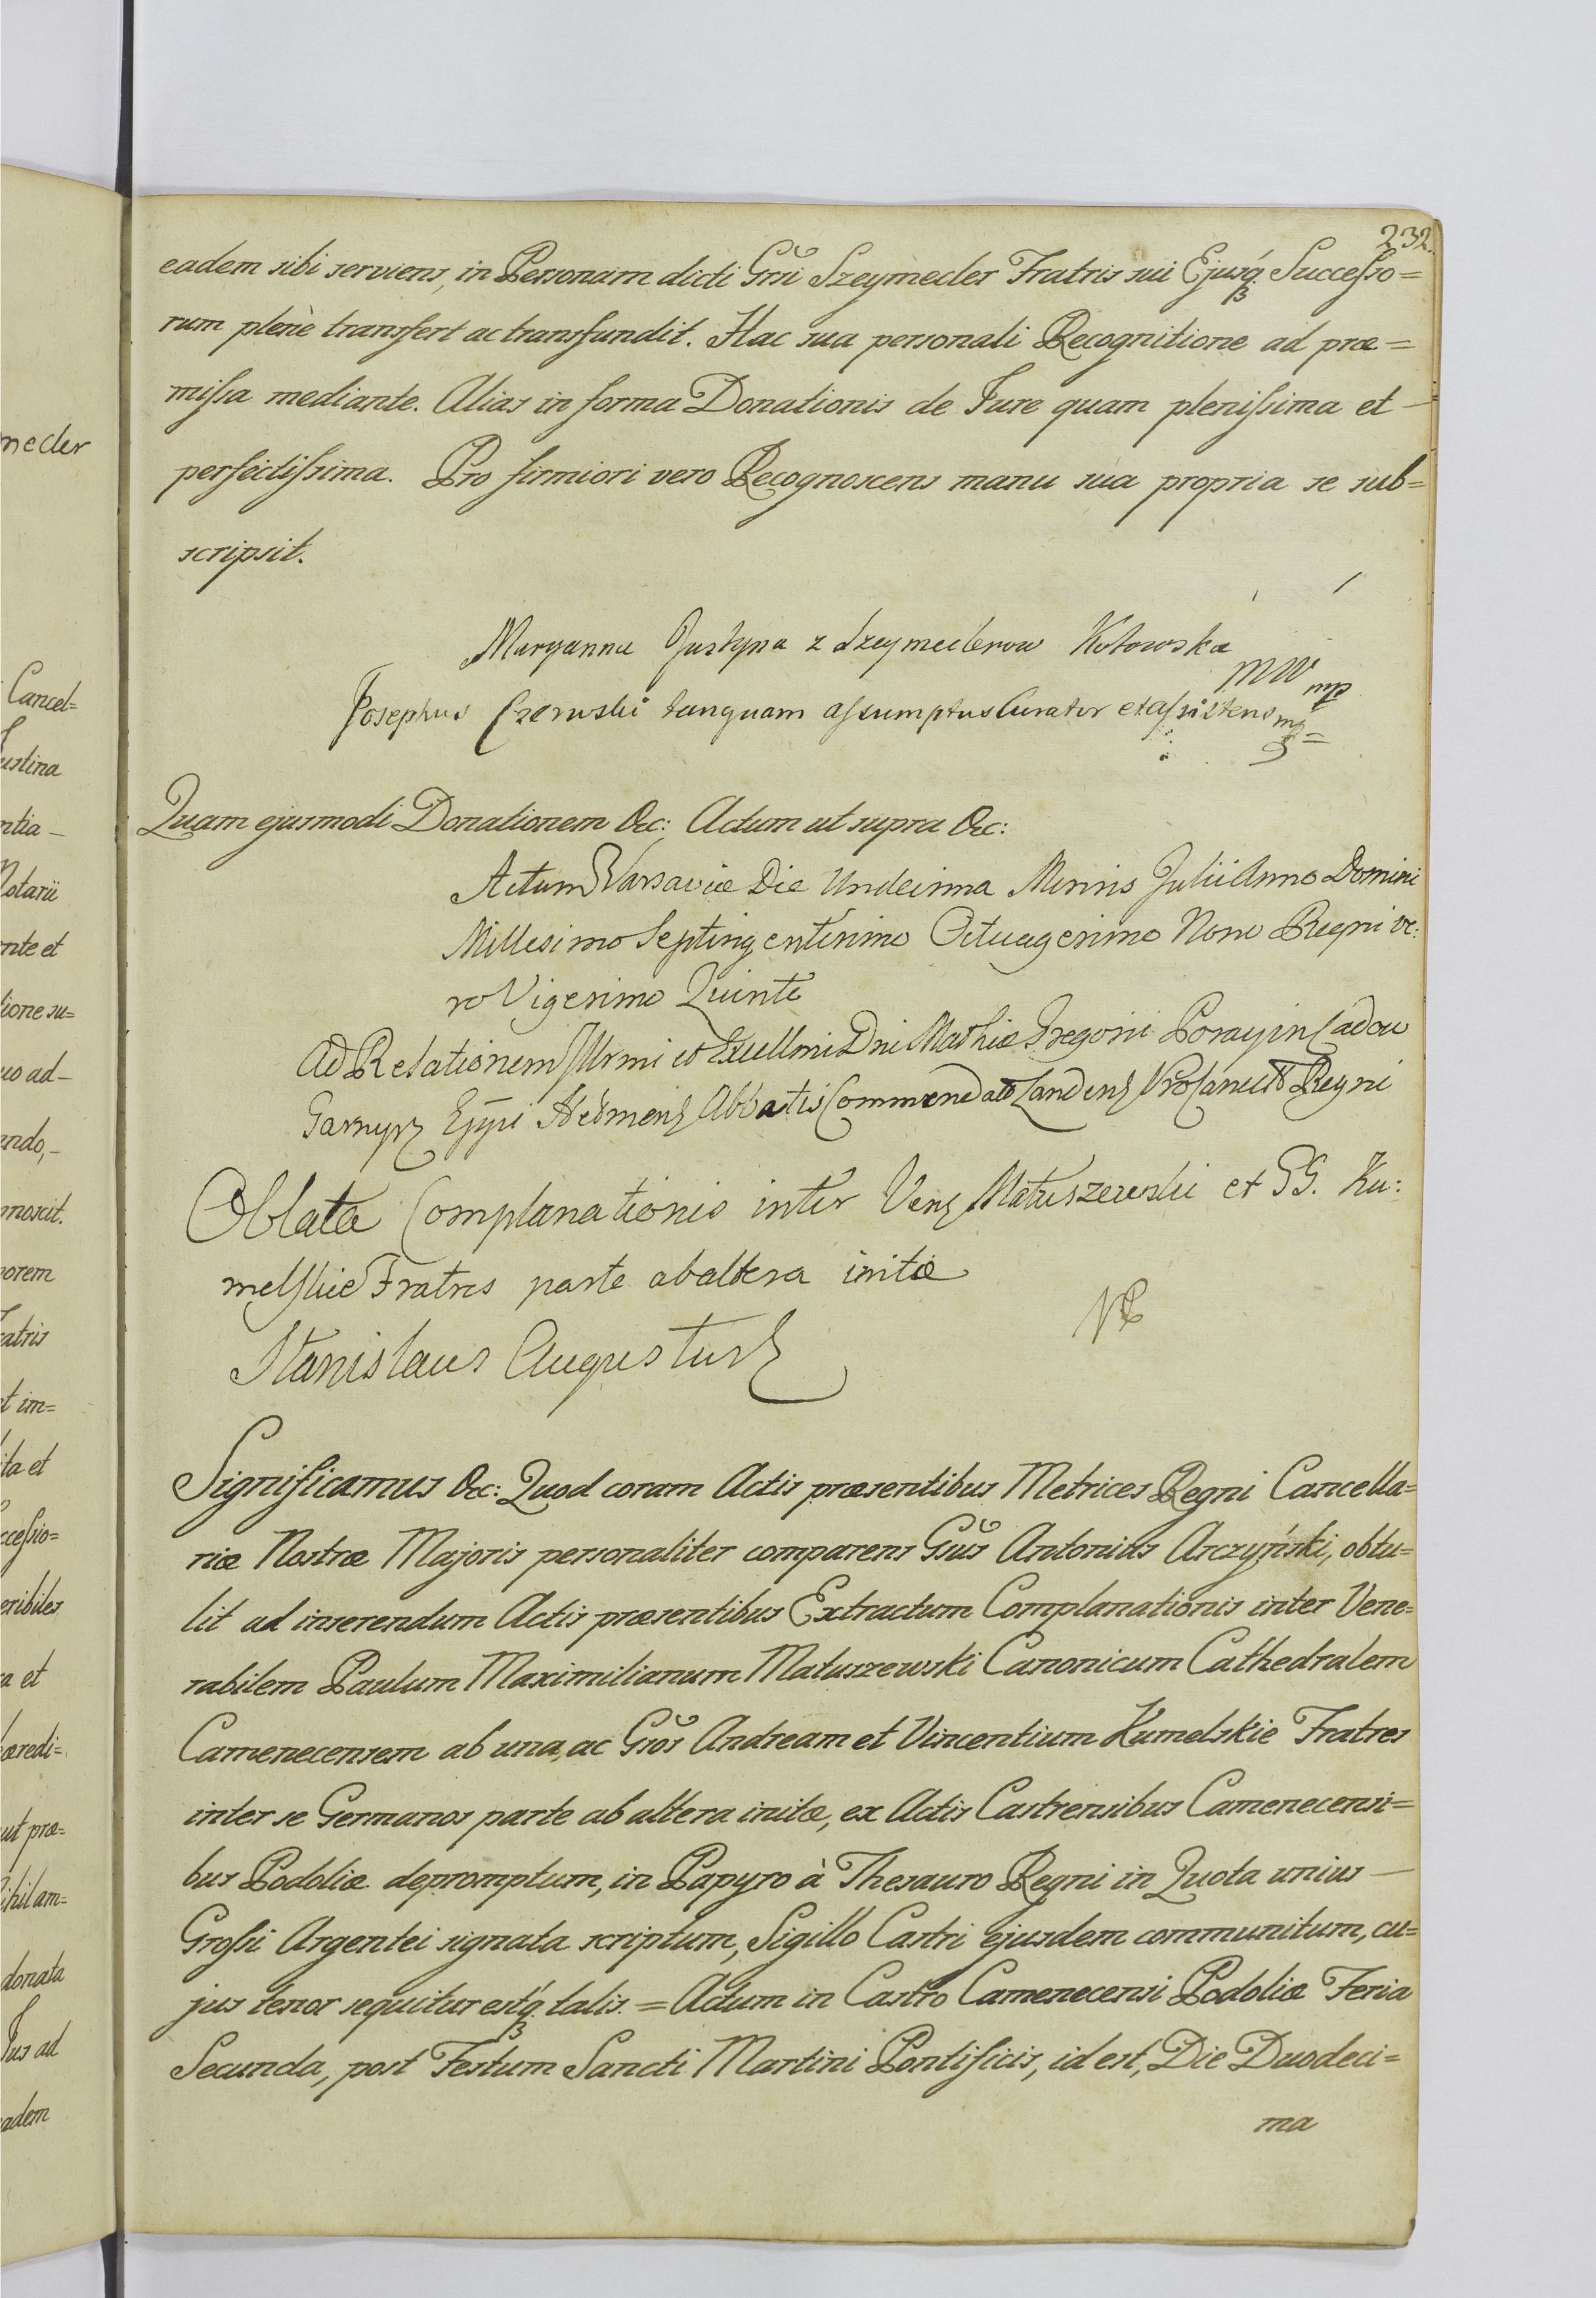 232.
eadem sibi serviens, in Personam dicti Gñsi Szeymecler Fratris sui Ejusq́ꝫ Successo=
rum plenè transfert ac transfundit. Hac sua personali Recognitione ad præ=
missa mediante. Alias in forma Donationis de Jure quam plenissima et —
perfectissima. Pro firmiori vero Recognoscens manu sua propria se sub=
scripsit.
Maryanna Justyna z Szeymeclerow Kotowska
mp
Josephus Czerwski tanquam assumptus Curator et assistens mp=
Quam ejusmodi Donationem &c: Actum ut supra &c:
Actum Varsaviæ Die Undecima Mensis Julii Anno Domini
Millesimo Septingentesimo Octuagesimo Nono Regni ve:
ro Vigesimo Quinto
Ad Relationem Illrmi et Excllmi Dni Mathiæ Grzegorii Poray in Ladow
Garnysz Eppi Abbatis Commendat Landens ProCancell Regni
Oblata Complanationis inter Venꝫ Matuszewski et GG. Ku:
melskie Fratres parte ab altera initæ
Stanislaus Augustus
Significamus &c: Quod coram Actis præsentibus Metrices Regni Cancella=
riæ Nostræ Majoris personaliter comparens Gñsus Antonius Arczyński, obtu=
lit ad inserendum Actis præsentibus Extractum Complanationis inter Vene=
rabilem Paulum Maximilianum Matuszewski Canonicum Cathedralem
Camenecensem ab una, ac Gños Andream et Vincentium Kumelskie Fratres
inter se Germanos parte ab altera initæ, ex Actis Castrensibus Camenecensi=
bus Podoliæ depromptum, in Papyro à Thesauro Regni in Quota unius —
Grossi Argentei signata scriptum, Sigillo Castri ejusdem communitum, cu=
jus tenor sequitur estq́ꝫ talis. = Actum in Castro Camenecensi Podoliæ Feria
Secunda, post Festum Sancti Martini Pontificis, id est, Die Duodeci=
ma